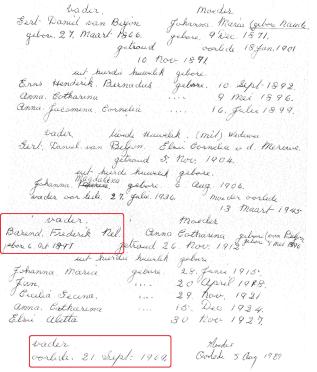 vader. Moeder
Gert. Daniel van Beyon Johanna Maria (gebore Naude
gebore. 27 Maart 1866. gebore. 9 Des 1871.
getroud oorlede 18 Jun. 1901
10 Nov 1891
uit hierdie huwelik gebore.
Erns Henderik Bernadus gebore. 10 Sept 1892.
Anna. Catharina .... 9 Mei 1896.
Anna. Jacomina. Cornelia .... 16. Julie 1899.
vader. twede Huwelik. (met) Weduwe
Gert. Daniel van Beyon. Elsie Cornelia v.d. Merwe.
getroud 5 Nov. 1904.
uit hierdie huweled gebore
Magdalena
Johanna gebore 6 Aug 1906.
vader oorlede. 27. Julie. 1936. moeder oorlede
13 Maart 1945
vader. Moeder
Barend. Frederik Nel. Anna Catharina gebore (van Beyon
gebore 9 Mei 1896
gebore 6 Oct getroud 26 Nov. 1912
uit hierdie huwelik gebore
Johanna Maria gebore. 28. Junie 1915.
.... 20 April 1918.
Cecilia .... 29. Nov. 1921
Anna. Catharina .... 15. Des 1924.
Elsie Aletta 30 Nov 1927.
vader
oorlede. 21. Sept. 1962 Moeder
Oorlede 5 Aug 1989